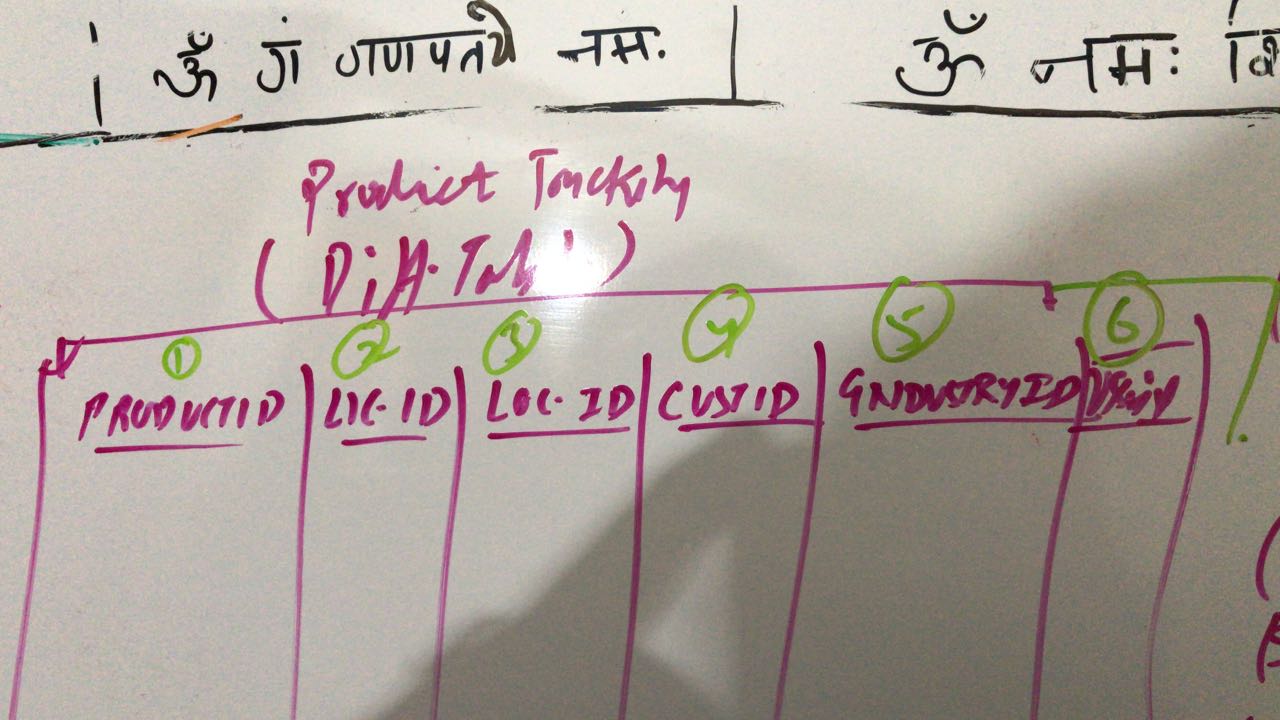 । ॐ गं गणपतये नमः | ॐ नमः
Product Tracking
(Diff. Table)
1 2 3 4 5 6
PRODUCTID LIC-ID LOC-ID CUSTID INDUSTRYID